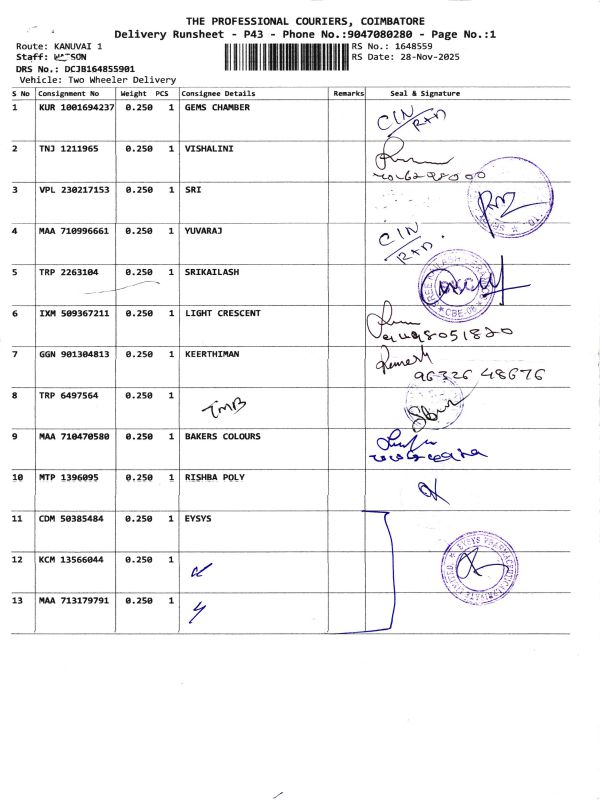 THE PROFESSIONAL COURIERS, COIMBATORE
Delivery Runsheet - P43 - Phone No.:9047080280 - Page No.:1
Route: KANUVAI 1 RS No.: 1648559
Staff: RS Date: 28-Nov-2025
DRS No.: DCJB164855901
Vehicle: Two Wheeler Delivery
S No Consignment No Weight PCS Consignee Details Remarks Seal & Signature
1 KUR 1001694237 0.250 1 GEMS CHAMBER CIN/R&D
2 TNJ 1211965 0.250 1 VISHALINI
3 VPL 230217153 0.250 1 SRI
4 MAA 710996661 0.250 1 YUVARAJ CIN/R&D
5 TRP 2263104 0.250 1 SRIKAILASH
6 IXM 509367211 0.250 1 LIGHT CRESCENT
7 GGN 901304813 0.250 1 KEERTHIMAN Ramesh
96326 48676
8 TRP 6497564 0.250 1 TMB
9 MAA 710470580 0.250 1 BAKERS COLOURS
10 MTP 1396095 0.250 1 RISHBA POLY
11 CDM 50385484 0.250 1 EYSYS
12 KCM 13566044 0.250 1
13 MAA 713179791 0.250 1